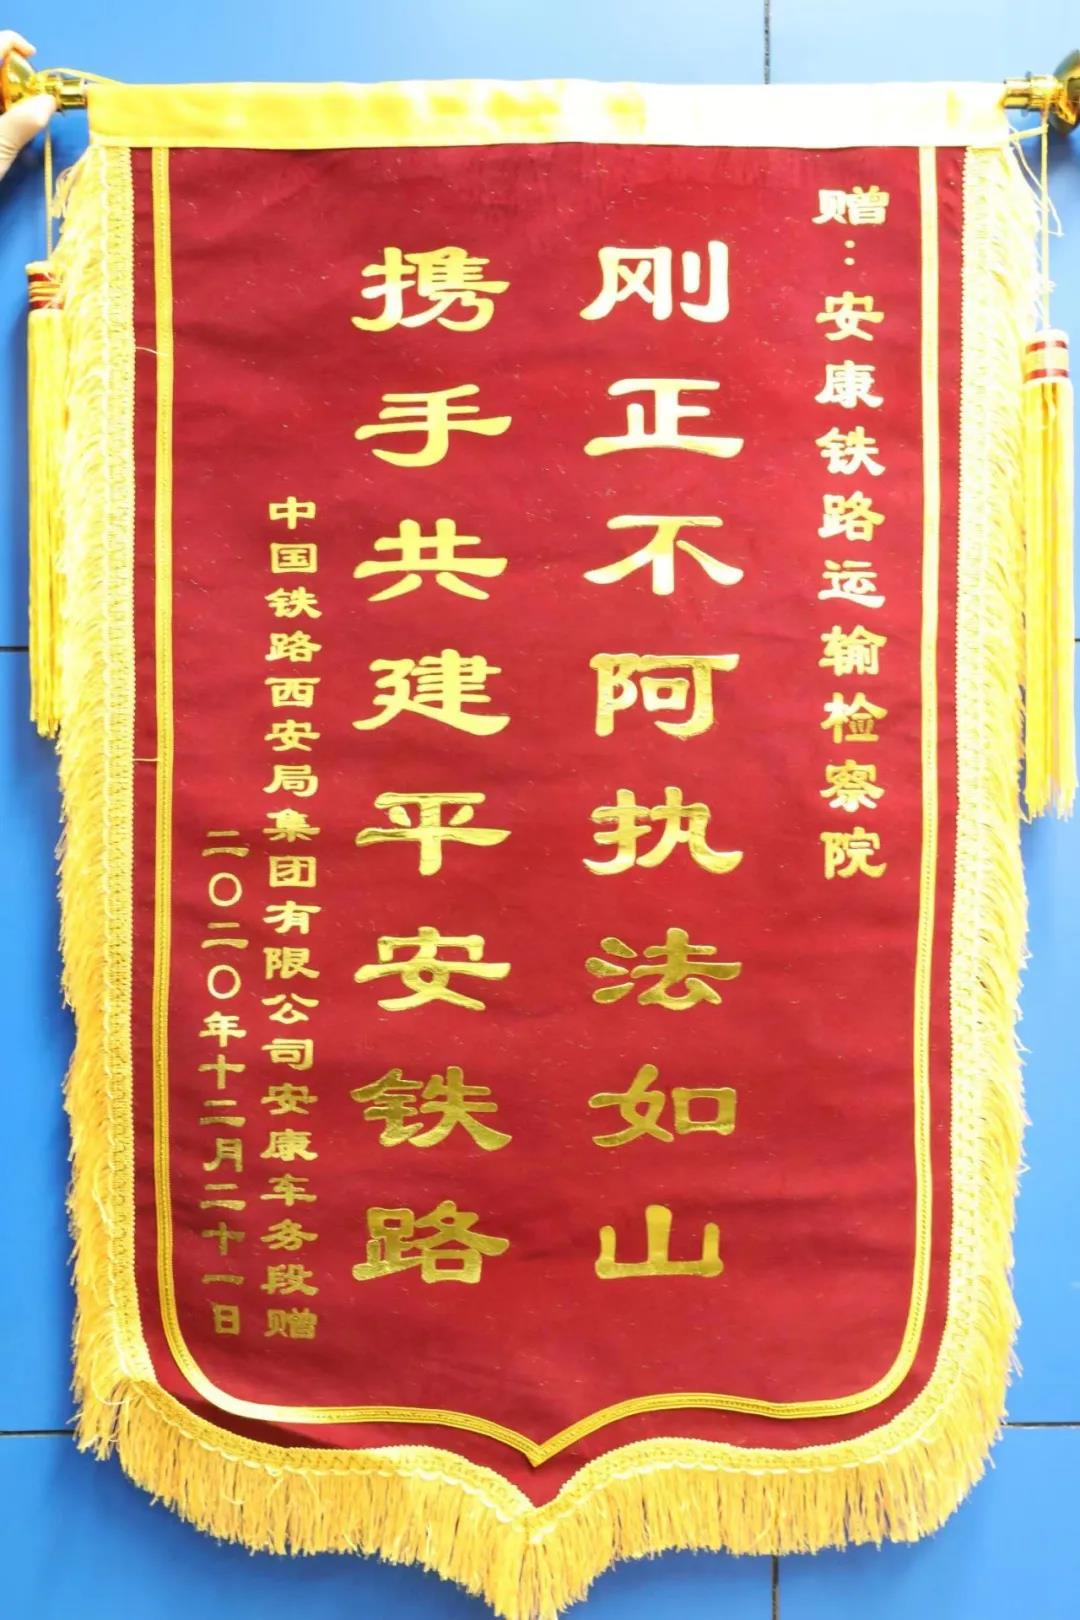 赠：安康铁路运输检察院
刚正不阿执法如山
携手共建平安铁路
中国铁路西安局集团有限公司安康车务段赠
二〇二〇年十二月二十一日